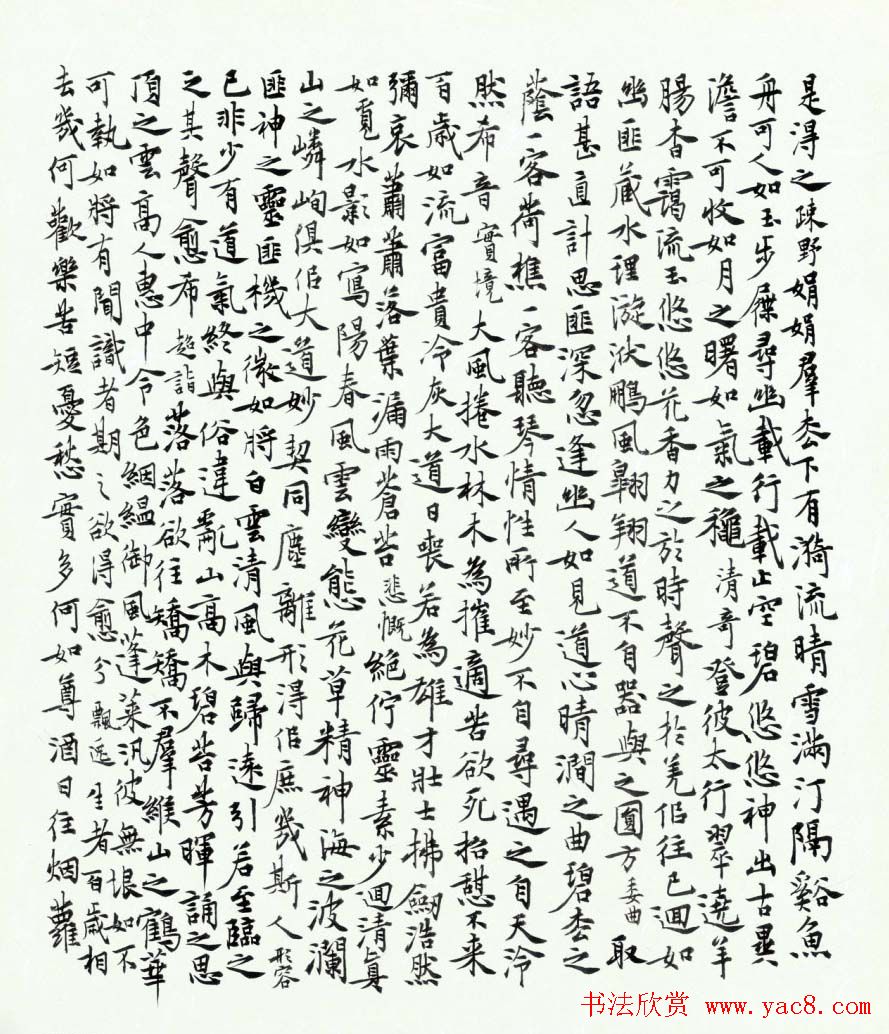 是得之疎野娟娟羣枩下有漪流晴雪滿汀隔谿魚
舟可人如玉步屧尋幽載行載止空碧悠悠神出古異
澹不可收如月之曙如氣之穐清奇登彼太行翠遶羊
腸杳靄流玉悠悠花香力之於時聲之於羌佀往已迴如
幽匪藏水理漩洑鵬風翱翔道不自器與之圓方委曲取
語甚直計思匪深忽逢幽人如見道心晴澗之曲碧枩之
蔭一客荷樵一客聽琴情性所至妙不自尋遇之自天泠
然希音實境大風捲水林木為摧適苦欲死招憩不来
百歲如流富貴冷灰大道日喪若為雄才壯士拂劒浩然
彌哀蕭蕭落葉漏雨蒼苔悲慨絕佇靈素少迴清真
如覓水影如寫陽春風雲變態花草精神海之波瀾
山之嶙峋俱佀大道妙契同塵離形得佀庶幾斯人形容
匪神之靈匪機之微如將白雲清風與歸遠引若至臨之
已非少有道氣終與俗違亂山高木碧苔芳暉誦之思
之其聲愈希超詣落落欲往矯矯不羣緱山之鶴華
頂之雲高人惠中令色絪縕御風蓬萊汎彼無垠如不
可執如將有聞識者期之欲得愈兮飄逸生者百歲相
去幾何歡樂苦短憂愁實多何如尊酒日往烟蘿
书法欣赏 www.yac8.com